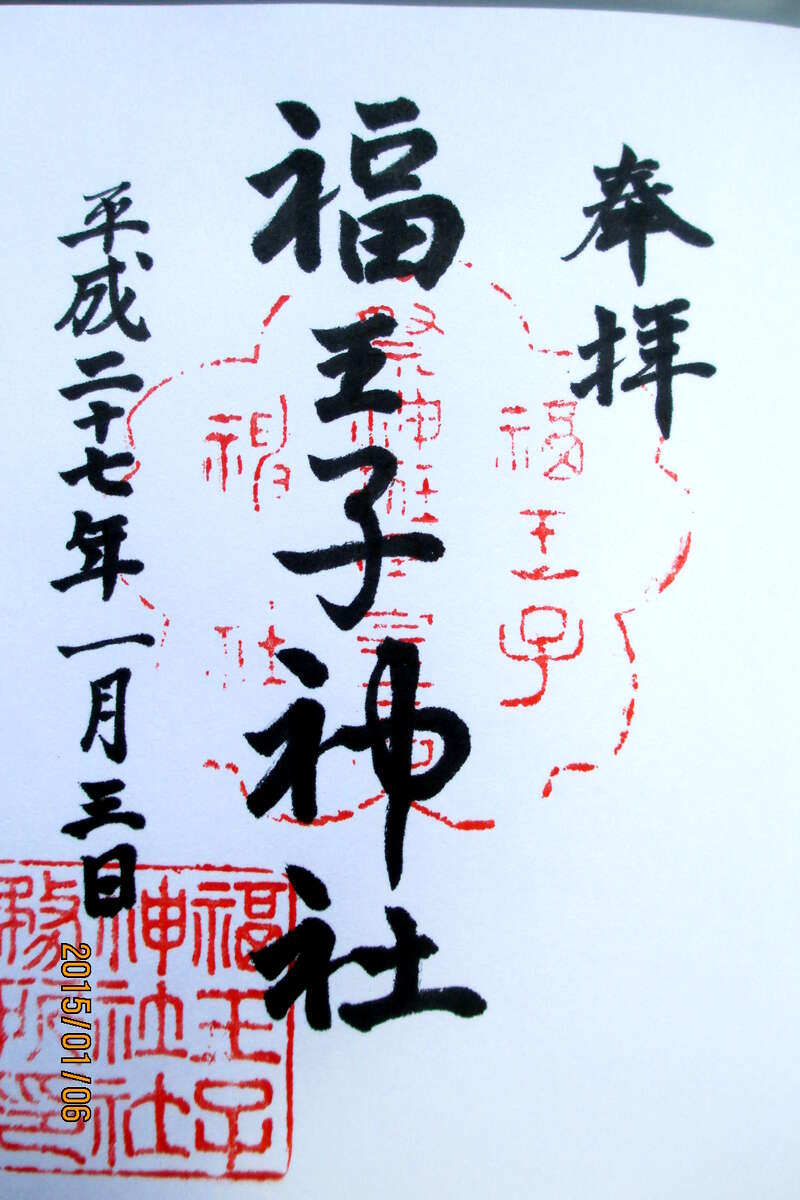 奉拝
福王子神社
平成二十七年一月三日
福王子
神社
福王子
神社社
務所印
2015/01/06